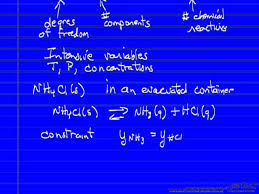 degrees of freedom
# components
# chemical reactions
Intensive variables
T, P, concentrations
NH₄Cl(s) in an evacuated container
NH₄Cl(s) ⇌ NH₃(g) + HCl(g)
constraint y NH₃ = y HCl